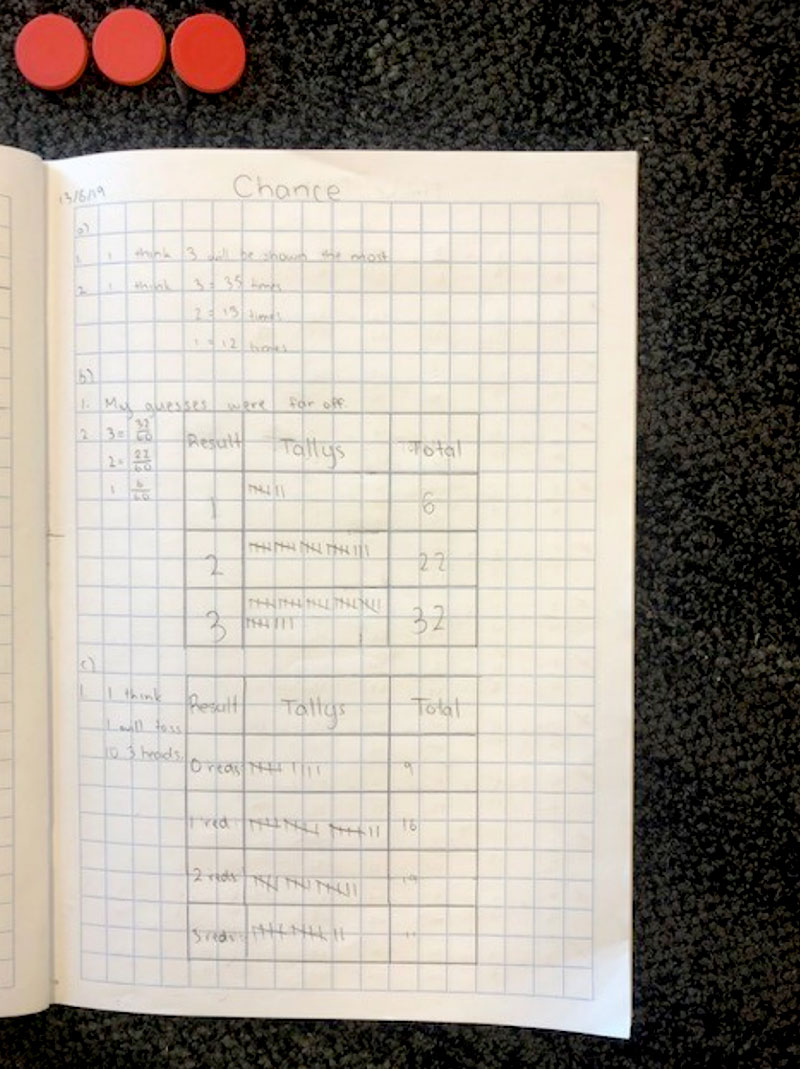 13/6/19
Chance
a)
1. I think 3 will be shown the most
2. I think 3 = 35 times
2 = 13 times
1 = 12 times
b)
1. My guesses were far off.
2. 3 = 32/60
2 = 22/60
1 6/60
Result Tallys Total
1 6
2 22
3 32
c)
1. I think
I will toss
10 3 heads.
Result Tallys Total
0 reds 9
1 red 16
2 reds
3 reds